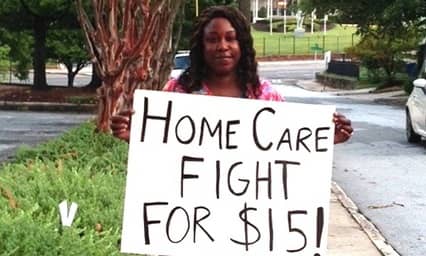 HOME CARE
FIGHT
FOR $15!